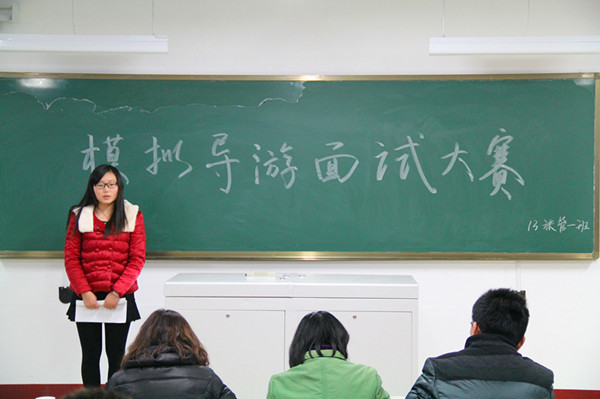 模拟导游面试大赛
13旅管一班